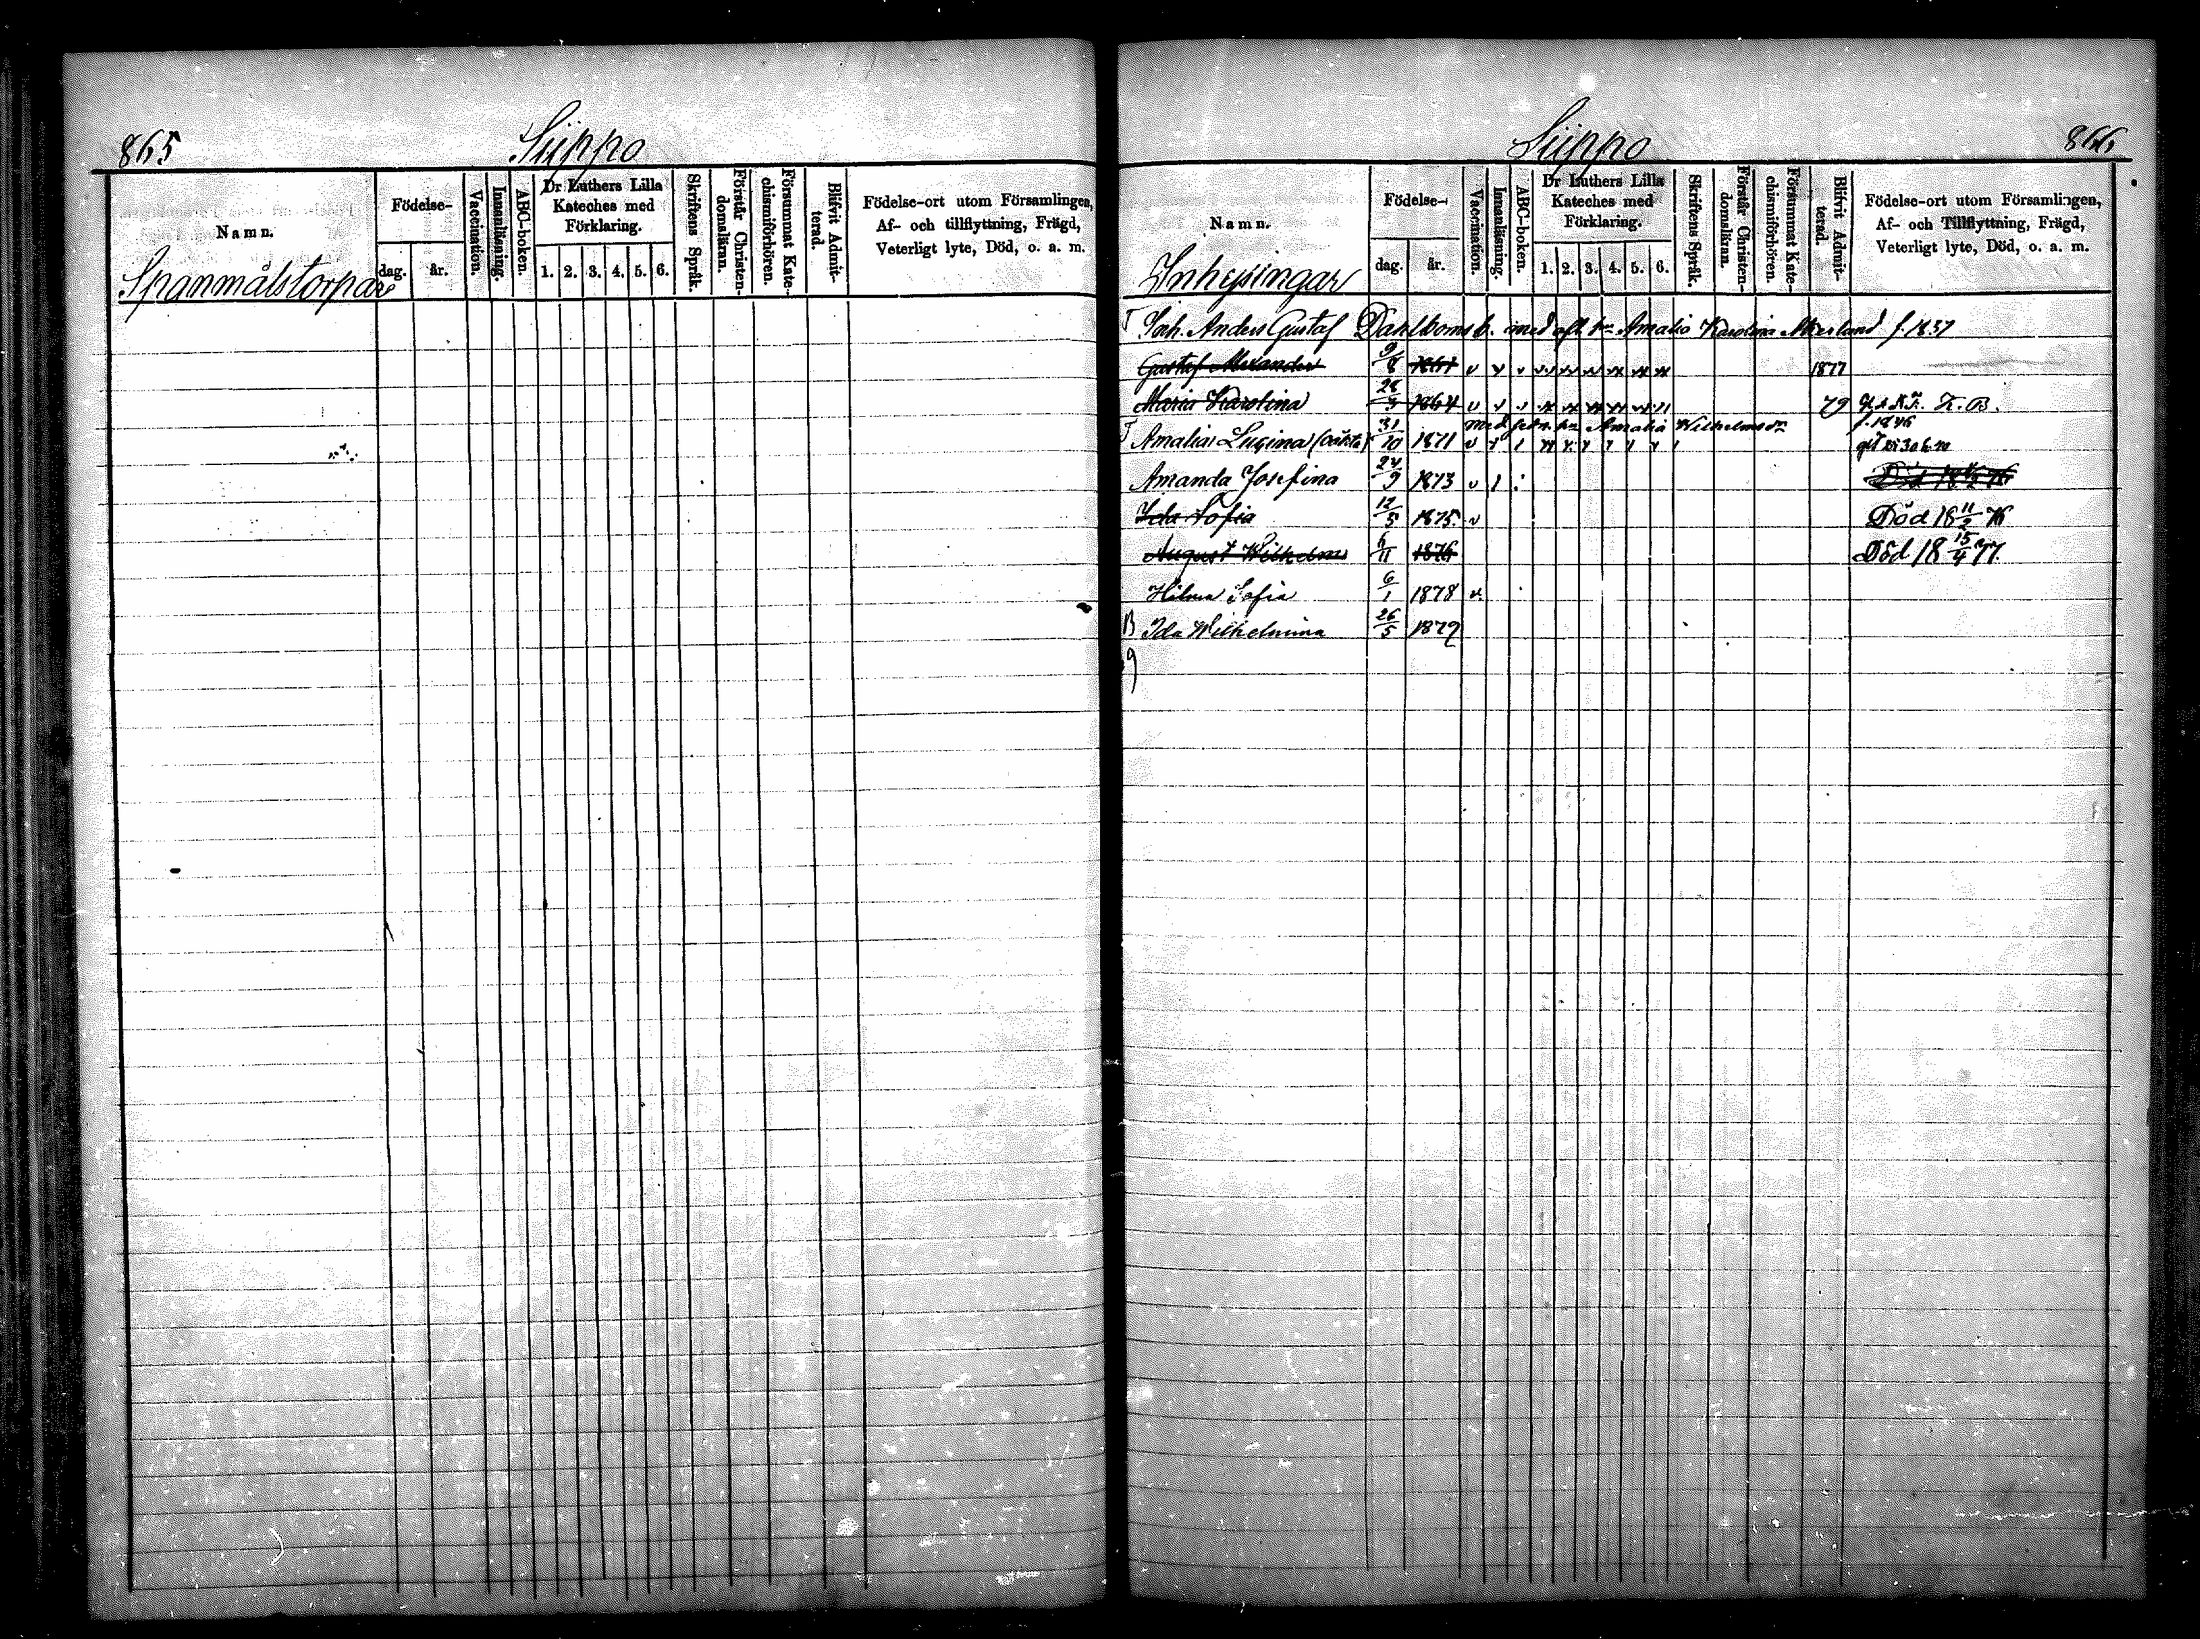 865
Siippo
Namn.
Spanmålstorpare
Födelse-
dag.
år.
Vaccination.
Innanläsning.
ABC-boken.
Dr Luthers Lilla
Kateches med
Förklaring.
1. 2. 3. 4. 5. 6.
Skriftens Språk.
Förstår Christen-
domsläran.
Försummat Kate-
chismiförhören.
Blifvit Admit-
terad.
Födelse-ort utom Församlingen,
Af- och tillflyttning, Frägd,
Veterligt lyte, Död, o. a. m.
Siippo
866
Namn.
Inhysingar
Födelse-
dag.
år.
Vaccination.
Innanläsning.
ABC-boken.
Dr Luthers Lilla
Kateches med
Förklaring.
1. 2. 3. 4. 5. 6.
Skriftens Språk.
Förstår Christen-
domsläran.
Försummat Kate-
chismiförhören.
Blifvit Admit-
terad.
Födelse-ort utom Församlingen,
Af- och Tillflyttning, Frägd,
Veterligt lyte, Död, o. a. m.
Anders Gustaf Dahlboms b. med afl. Amalia Karolina f. 1837
Gustaf Alexander 9/8 1877
Maria Karolina 28/3 1864 79
med Amalia Wilhelmsdr f. 1846
Amalia 31/10 1871
Amanda Josefina 24/9 1873
Ida Sofia 12/5 1875 Död 18 11/2 76
August Wilhelm 6/11 1876 Död 18 15/4 77
Hilma Sofia 6/1 1878
B Ida Wilhelmina 26/5 1879
9